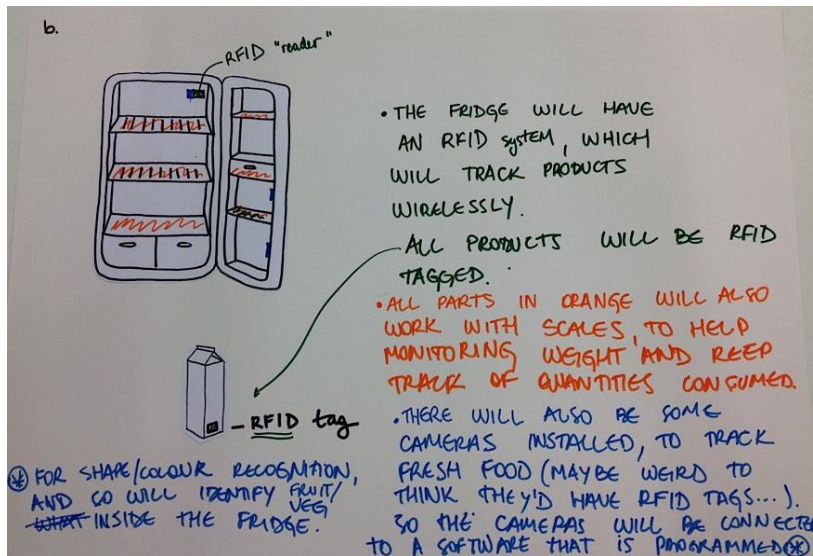 b.
RFID "reader"
• THE FRIDGE WILL HAVE
AN RFID system, WHICH
WILL TRACK PRODUCTS
WIRELESSLY.
ALL PRODUCTS WILL BE RFID
TAGGED.
• ALL PARTS IN ORANGE WILL ALSO
WORK WITH SCALES, TO HELP
MONITORING WEIGHT AND KEEP
TRACK OF QUANTITIES CONSUMED.
– RFID tag
• THERE WILL ALSO BE SOME
CAMERAS INSTALLED, TO TRACK
FRESH FOOD (MAYBE WEIRD TO
THINK THEY'D HAVE RFID TAGS...).
SO THE CAMERAS WILL BE CONNECTE
TO A SOFTWARE THAT IS PROGRAMMED *
* FOR SHAPE/COLOUR RECOGNITION,
AND SO WILL IDENTIFY FRUIT/
VEG
WHAT INSIDE THE FRIDGE.